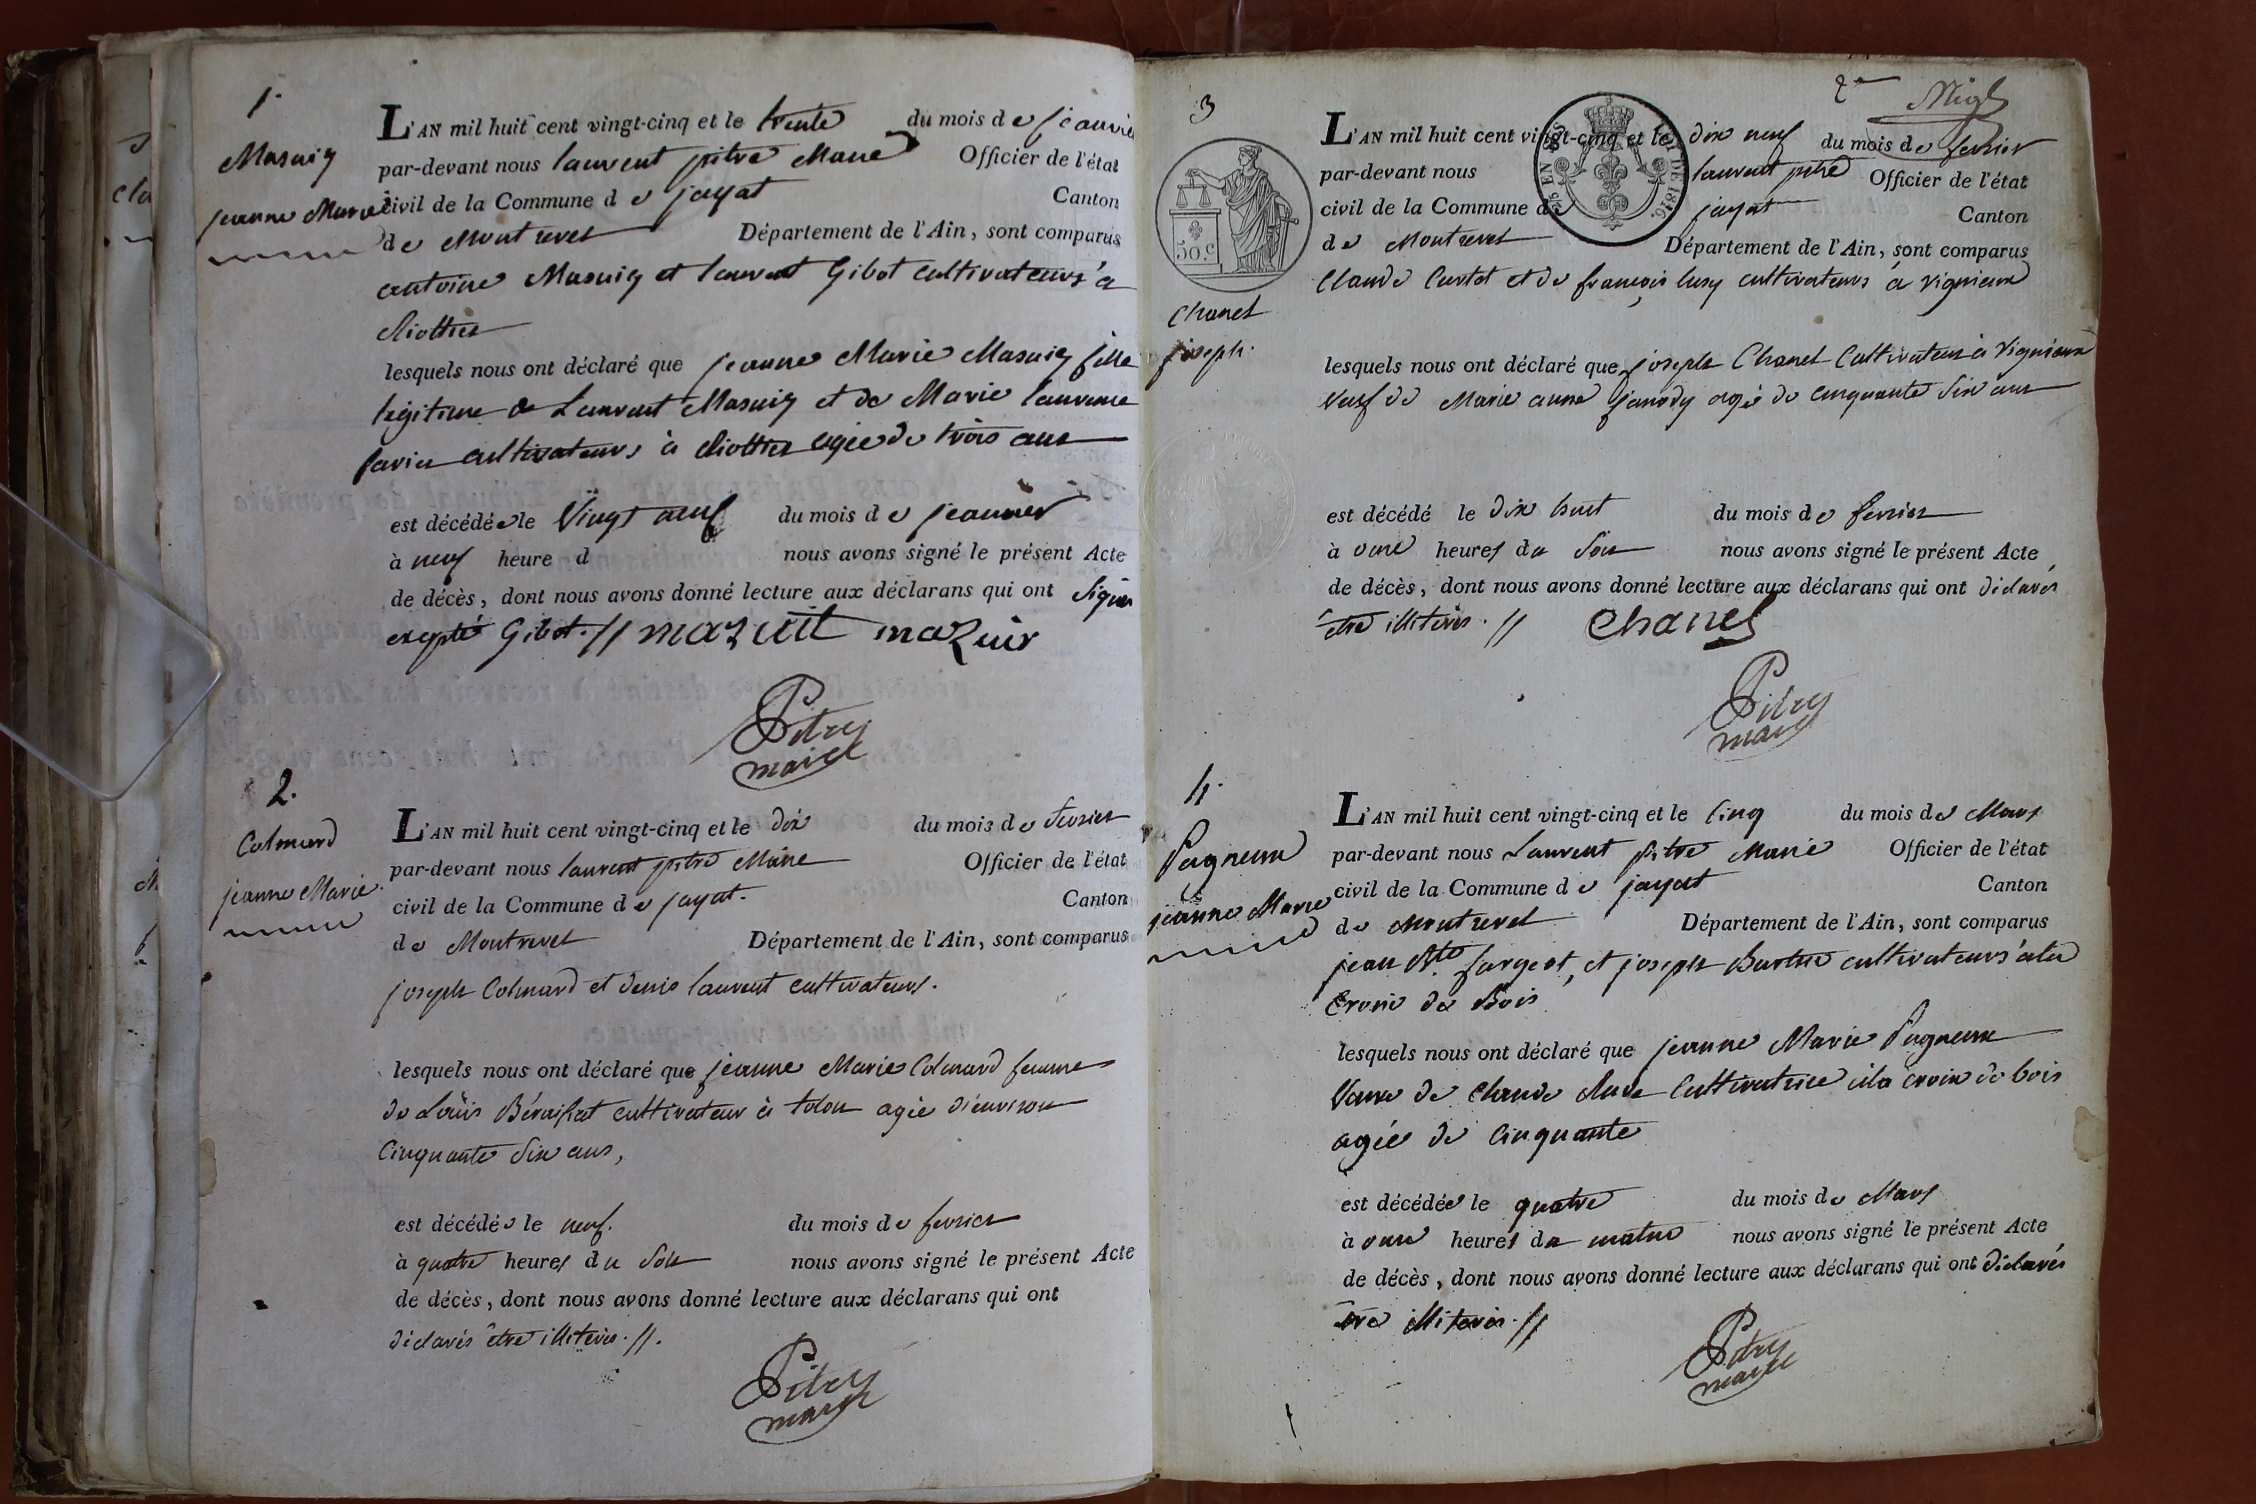 1.
Masuiy
jeanne Marie
L'AN mil huit cent vingt-cinq et le trente du mois de jeanvier
par-devant nous laurent pitre Maire Officier de l'état
civil de la Commune de jayat Canton
de Montrevel Département de l'Ain, sont comparus
antoine Masuiy et laurent Gibot cultivateurs à
cliottes
lesquels nous ont déclaré que jeanne Marie Masuiy fille
légitime de Laurent Masuiy et de Marie laurence
cultivateurs à cliottes agée de trois ans
est décédée le Vingt neuf du mois de jeanvier
à neuf heure d nous avons signé le présent Acte
de décès, dont nous avons donné lecture aux déclarans qui ont signés
excepté Gibot. // mazuit mazuir
Pitre
maire
2.
Colmard
jeanne Marie
L'AN mil huit cent vingt-cinq et le dix du mois de fevrier
par-devant nous laurent pitre Maire Officier de l'état
civil de la Commune de jayat. Canton
de Montrevel Département de l'Ain, sont comparus
joseph Colmard et denis laurent cultivateurs.
lesquels nous ont déclaré que jeanne Marie Colmard femme
de Loüis cultivateur à tolon agée d'environ
Cinquante Six ans,
est décédée le neuf. du mois de fevrier
à quatre heures du Soir nous avons signé le présent Acte
de décès, dont nous avons donné lecture aux déclarans qui ont
déclarés être illiterés. //.
Pitre
maire
2me
3
50.c
Chanel
joseph.
L'AN mil huit cent vingt-cinq et le dix neuf du mois de fevrier
par-devant nous laurent pitre Officier de l'état
civil de la Commune de jayat Canton
de Montrevel Département de l'Ain, sont comparus
Claude Curtet et de françois lusy cultivateurs à vignieux
lesquels nous ont déclaré que joseph Chanel Cultivateur à vignieux
veuf de Marie anne janody agé de cinquante Six ans
est décédé le dix huit du mois de fevrier
à onze heures du Soir nous avons signé le présent Acte
de décès, dont nous avons donné lecture aux déclarans qui ont déclarés
être illiterés. // Chanel
Pitre
maire
4.
Pagneux
jeanne Marie
L'AN mil huit cent vingt-cinq et le Cinq du mois de Mars
par-devant nous Laurent pitre Maire Officier de l'état
civil de la Commune de jayat Canton
de Montrevel Département de l'Ain, sont comparus
jean Bte fargeot, et joseph cultivateurs à la
Croix de Bois
lesquels nous ont déclaré que jeanne Marie Pagneux
Veuve de Claude Cultivatrice à la croix de bois
agée de Cinquante
est décédée le quatre du mois de Mars
à onze heures du matin nous avons signé le présent Acte
de décès, dont nous avons donné lecture aux déclarans qui ont déclarés
être illiterés. //
Pitre
maire